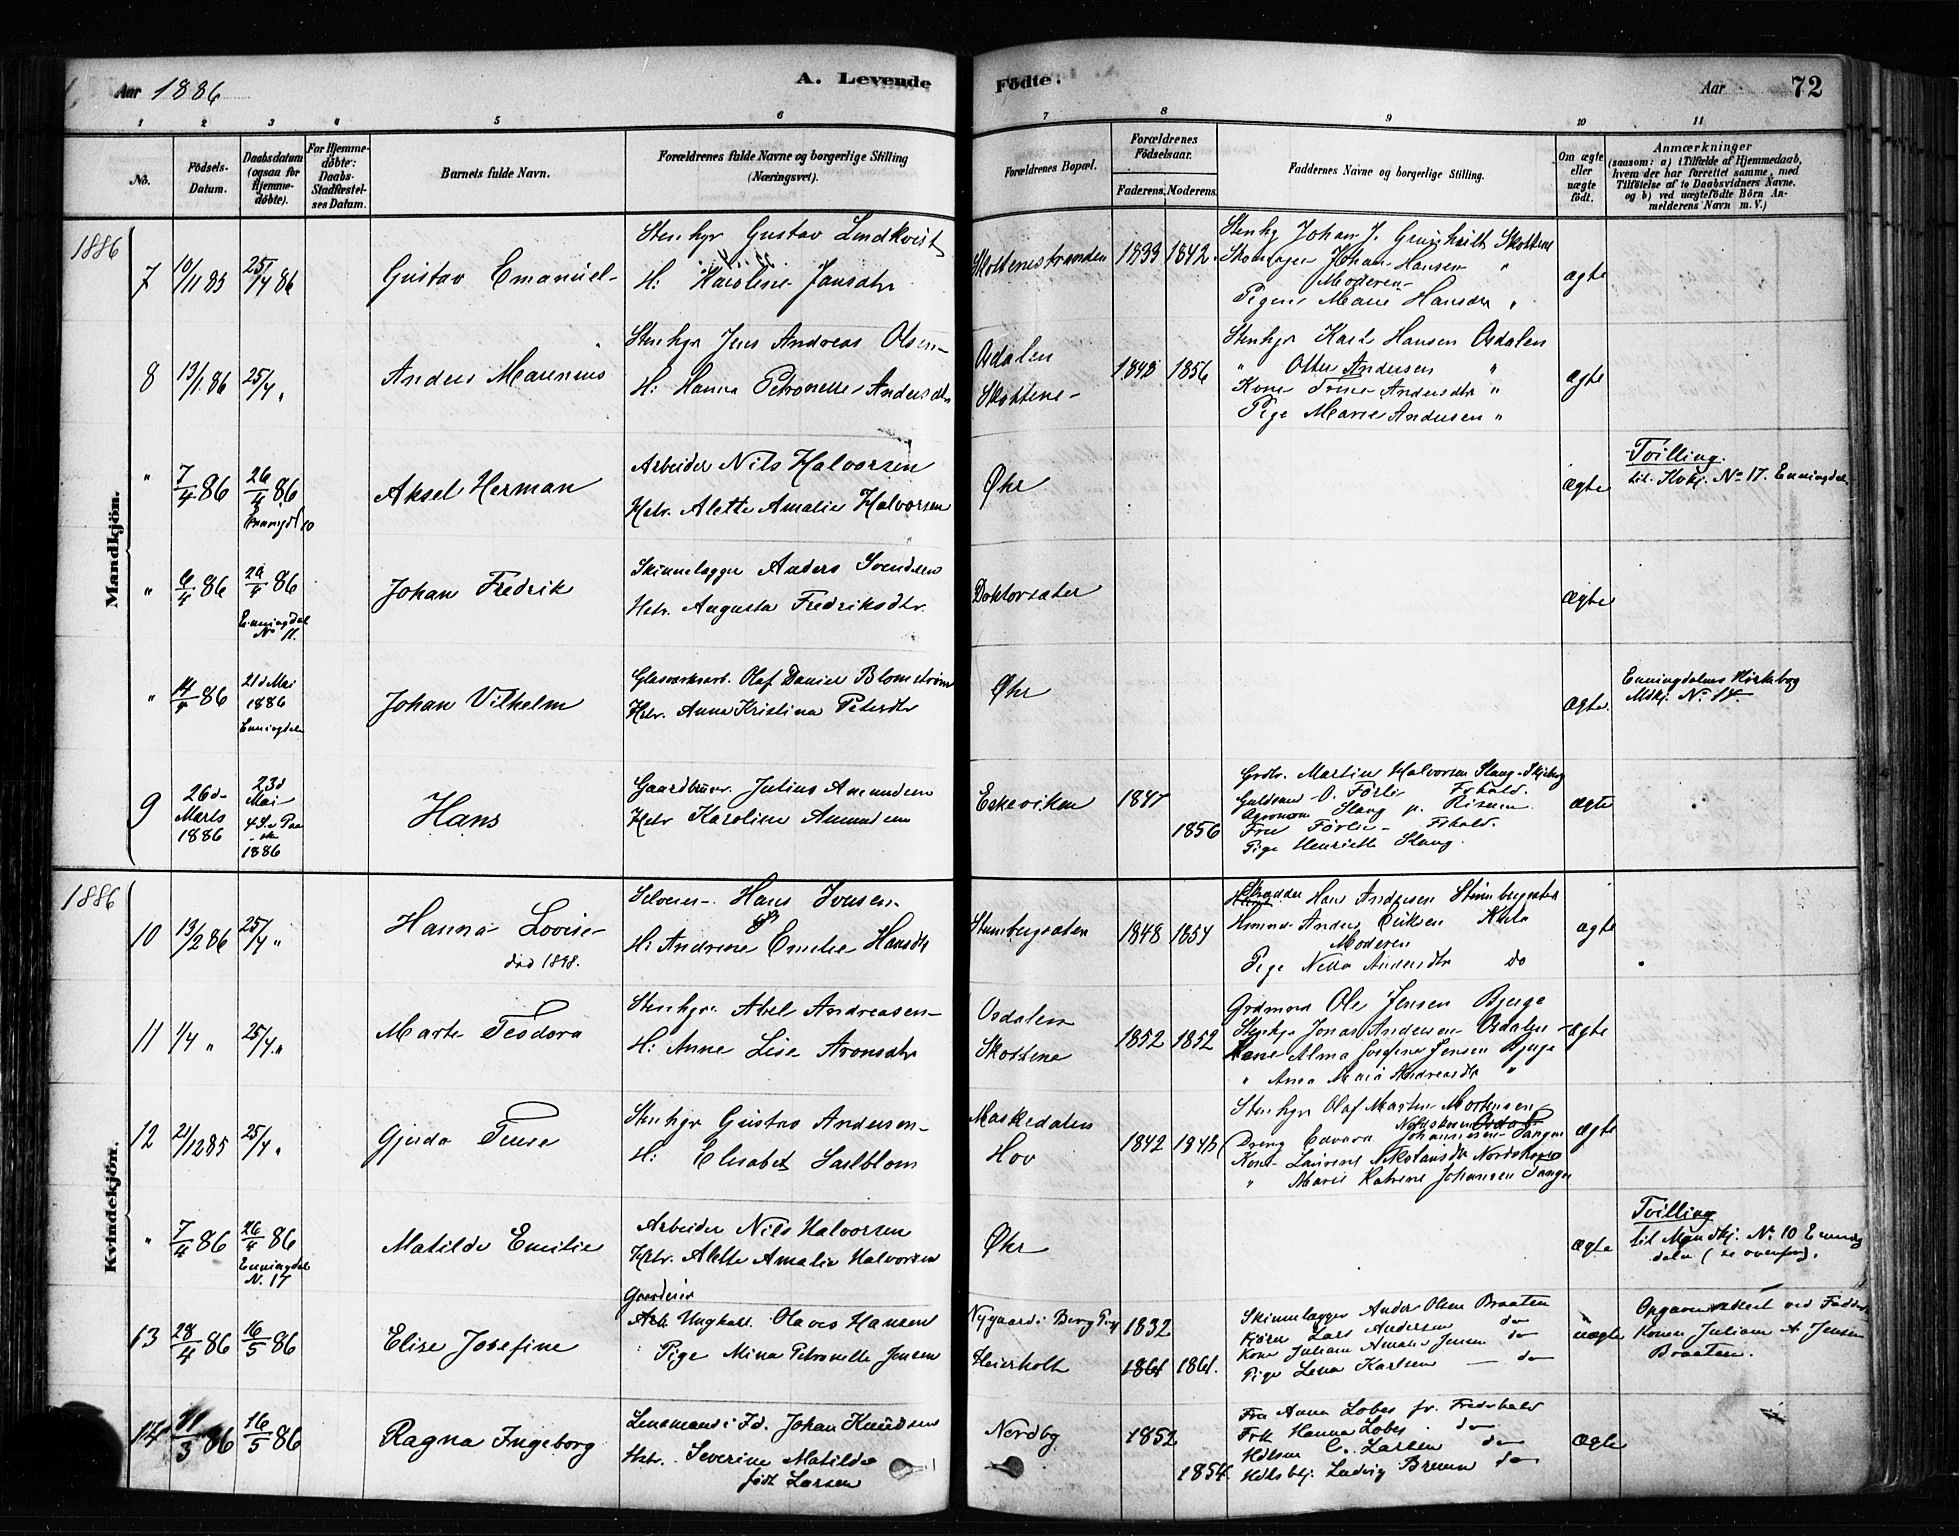 Aar 1886
A. Levende
Födte.
Aar
72
1 2 3 4 5 6 7 8 9 10 11
No.
Födsels-
Datum.
Daabsdatum
(ogsaa for
Hjemme-
döbte).
For Hjemme-
döbte:
Daabs-
Stadfæstel-
ses Datum.
Barnets fulde Navn.
Forældrenes fulde Navne og borgerlige Stilling
(Næringsvei).
Forældrenes Bopæl.
Forældrenes
Födselsaar.
Faderens. Moderens.
Faddernes Navne og borgerlige Stilling.
Om ægte
eller
uægte
födt.
Anmærkninger
(saasom: a) i Tilfælde af Hjemmedaab,
hvem der har forrettet samme, med
Tilföielse af to Daabsvidners Navne.
og b) ved uægtefödte Börn An-
melderens Navn m. V.)
Mandkjön.
1886
7
10/11 85
25/4 86
Gustav Emanuel
Stenhgr Gustav Lindkvist
H: Karoline Jansdtr
Skottenestranden
1833 1842
Stenhg Johan J. Skotten
Johan Hansen "
Moderen
Pigen Marie Hansdtr "
ægte
8
13/1 86
25/4 "
Anders Marenius
Stenhgr Jens Andreas Olsen
H: Hanna Petronelle Andersdtr
Osdalen
Skottene
1848 1856
Stenhgr Karl Hansen Osdalen
" Otter Andersen "
Kone Trine Andersdtr "
Pige Marie Andersen "
ægte
"
7/4 86
26/4 86
Aksel Herman
Arbeider Nils Halvorsen
Hstr. Alette Amalie Halvorsen
Øhr
Ægte
Tvilling
til Kvkj. No 17. Enningdal
"
6/4 86
86
Enningdal
No 11.
Johan Fredrik
Skinnelægger Anders Svendsen
Hstr. Augusta Fredriksdtr.
Doktorsæter
Ægte
"
86
21d Mai
1886
Enningdalen
Johan Vilhelm
Glasværksarb. Olaf Daniel Blomstrøm
Hstr. Anna Kristina Petersdtr
Øhr
Ægte.
Enningdalens Kirkebog
Mskj. No 14
9
26d
Marts
1886
23d
Mai
1886
Hans
Gaardbruer. Julius Amundsen
Hstr Karoline Amundsen
Eskeviken
1847
1856
Grdbr. Martin Halvorsen Slang-Skjeberg
Guldsmed O. Förli Frhald.
Agronom Slang p. Risum
Fru Förlie Frhald.
Pige Henriette Slang.
Ægte
Kvindekjön.
1886
10
13/2 86
25/4 "
Hanna Lovise
död 1898.
Selveier Hans Iversen
H: Andrine Emelie Hansdtr
Stumbergsæten
1848 1854
Skrædder Hans Andersen Stumbergsæter
Anders Eriksen
Moderen
Pige Netta Andersdtr do
ægte
11
1/4 "
25/4 "
Marte Teodora
Stenhgr. Abel Andreasen
H: Anne Lise Aronsdtr
Osdalen
Skottene
1852 1852
Grdmand Ole Jensen Bjerge
Stenhgr Jonas Andersen Osdalen
Kone Alma Josefine Jensen Bjerge
" Anna Maria Andreasdtr "
ægte
12
21/12 85
25/4 "
Gjerda
Stenhgr Gustav Andersen
H: Elisabet Sahlblom
Maskedalen
Hov
1842 1843
Stenhgr Olaf Martin Mortensen
Dreng Edvard Johannesen Tangen
Kone Laurense Nordskogen
" Marie Katrine Johansen Tangen
ægte
"
7/4 86
26/4 86
Enningdal
N. 17
Matilde Emilie
Arbeider Nils Halvorsen
Hstr. Alette Amalie Halvorsen
Øhr
Ægte
Tvilling
til Mandkj. No 10 Enning
dalen (se ovenfor).
13
28/4 86
16/5 86
Elise Josefine
Gaardeier
Arb. Ungkarl Olaves Hansen
Pige Mina Petronelle Jensen
Nygaard i Berg Pgj
Heierholt
1832
1861 1861.
Skinnelægger Anders Olsen Braaten
Lars Andersen do
Kone Juliane Amalie Jensen do
Pige Lena Karlsen do
uægte
Opgaven attest. ved Fadder
Konen Juliane A. Jensen
Braaten.
14
11/3 86
16/5 86
Ragna Ingeborg
Lensmand i Id. Johan Knudsen
Hstr. Severine Matilde
födt Larsen
Nordby
1852
1854.
Fru Anna Lobes fr. Fredrhald
Frk Hanna Lobes do
Hdlsm C. Larsen do
Hdlsbtj. Ludvig Bruun do
Ægte